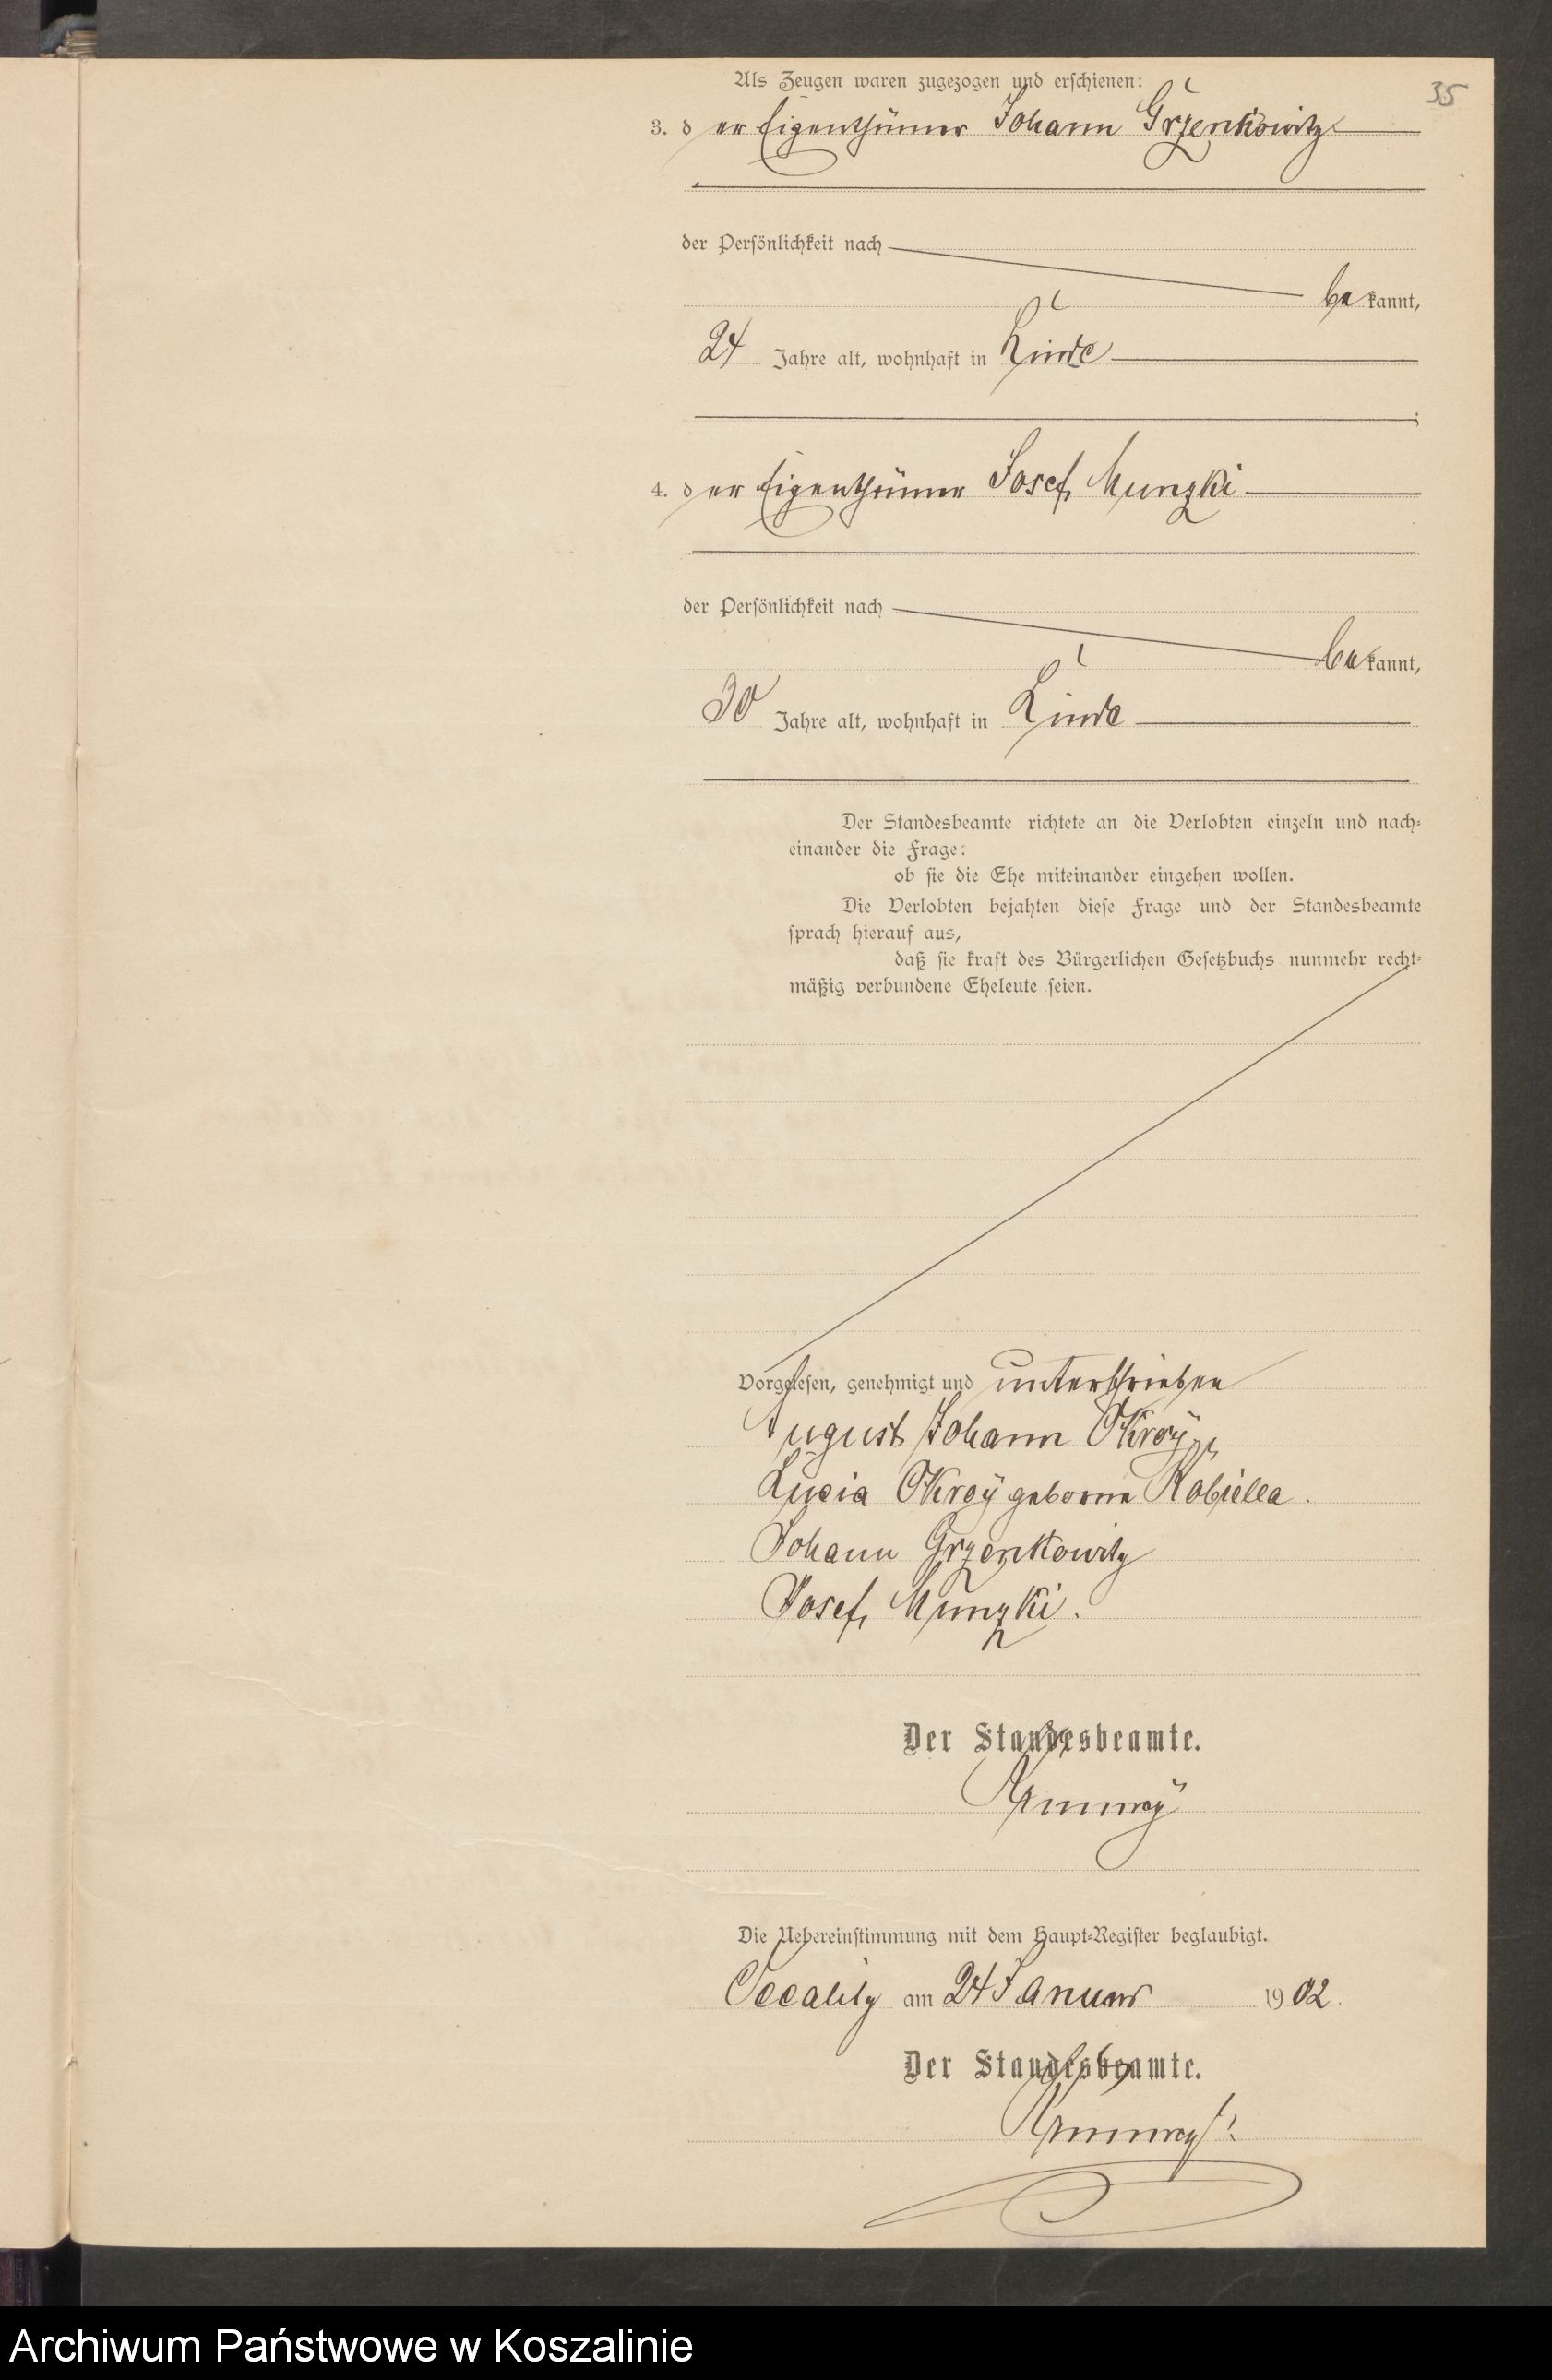 35
Als Zeugen waren zugezogen und erschienen:
3. der Eigenthümer Johann Grzenkowitz
der Persönlichkeit nach
bekannt,
24 Jahre alt, wohnhaft in Linde
;
4. der Eigenthümer Josef Munzki
der Persönlichkeit nach
bekannt,
30 Jahre alt, wohnhaft in Linde
Der Standesbeamte richtete an die Verlobten einzeln und nach=
einander die Frage:
ob sie die Ehe miteinander eingehen wollen.
Die Verlobten bejahten diese Frage und der Standesbeamte
sprach hierauf aus,
daß sie kraft des Bürgerlichen Gesetzbuchs nunmehr recht=
mäßig verbundene Eheleute seien.
Vorgelesen, genehmigt und unterschrieben
August Johann Okroÿ
Lucia Okroÿ geborne Kobiella.
Johann Grzenkowitz
Josef Munzki.
Der Standesbeamte.
Die Uebereinstimmung mit dem Haupt=Register beglaubigt.
am 24 Januar 1902.
Der Standesbeamte.
Archiwum Państwowe w Koszalinie